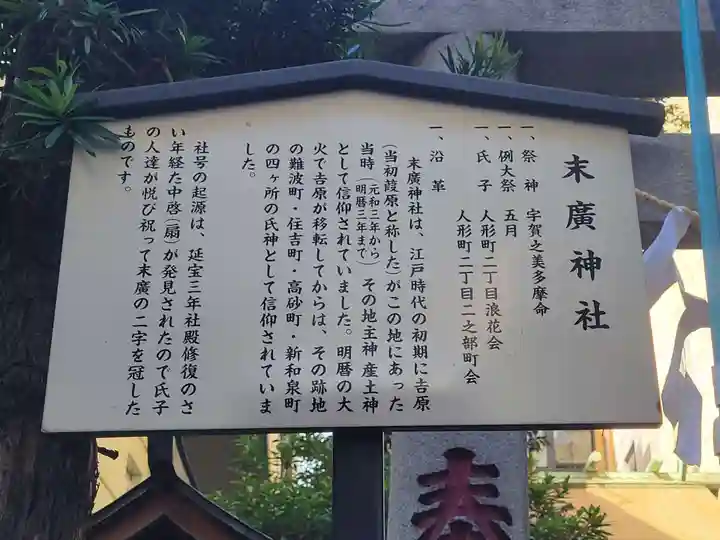 末廣神社
一、祭神 宇賀之美多摩命
一、例大祭 五月
一、氏子 人形町二丁目浪花会
人形町二丁目二之部町会
一、沿革
末廣神社は、江戸時代の初期に吉原
(当初葭原と称した)がこの地にあった
当時(元和三年から明暦三年まで)その地主神産土神
として信仰されていました。明暦の大
火で吉原が移転してからは、その跡地
の難波町・住吉町・高砂町・新和泉町
の四ヶ所の氏神として信仰されていま
した。
社号の起源は、延宝三年社殿修復のさ
い年経た中啓(扇)が発見されたので氏子
の人達が悦び祝って末廣の二字を冠した
ものです。
奉